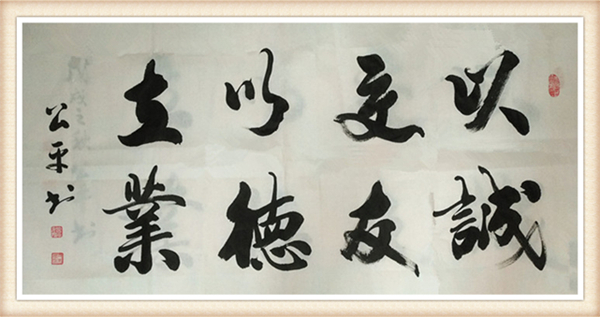 以誠
交友
以德
立業
公平书